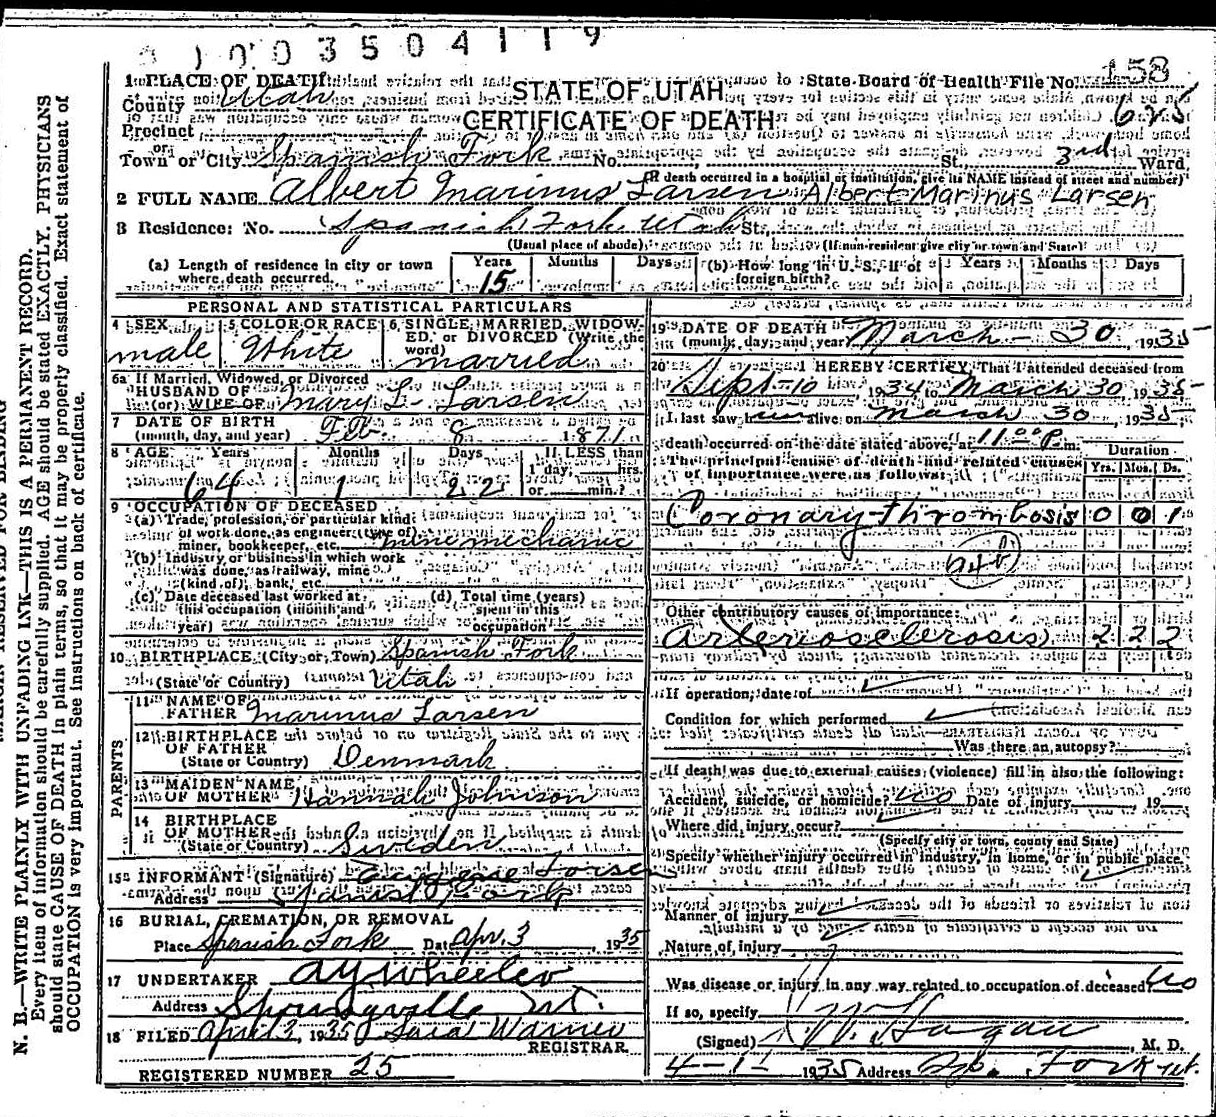 1003504119
158
1 PLACE OF DEATH
STATE OF UTAH
State Board of Health File No.
County Utah
625
Precinct
CERTIFICATE OF DEATH
or
Town or City Spanish Fork No. St. 3rd Ward
(If death occurred in a hospital or institution, give its NAME instead of street and number)
2 FULL NAME Albert Marinus Larsen Albert Marinus Larsen
3 Residence: No. Spanish Fork Utah St.
(Usual place of abode) (If non-resident give city or town and State)
(a) Length of residence in city or town where death occurred. Years 15 Months Days (b) How long in U. S., if of foreign birth? Years Months Days
PERSONAL AND STATISTICAL PARTICULARS
4 SEX male
5 COLOR OR RACE White
6 SINGLE, MARRIED, WIDOWED, or DIVORCED (Write the word) married
6a If Married, Widowed, or Divorced
HUSBAND OF
(or) WIFE OF Mary L. Larsen
7 DATE OF BIRTH
(month, day, and year) Feb. 8 1871
8 AGE Years 64 Months 1 Days 22 If LESS than 1 day, hrs. or min.?
9 OCCUPATION OF DECEASED
(a) Trade, profession, or particular kind
of work done, as engineer, (type of)
miner, bookkeeper, etc. mine mechanic
(b) Industry or business in which work
was done, as railway, mine
(kind of), bank, etc.
(c) Date deceased last worked at
this occupation (month and
year)
(d) Total time (years)
spent in this
occupation
10 BIRTHPLACE (City or Town) Spanish Fork
(State or Country) Utah
PARENTS
11 NAME OF
FATHER Marinus Larsen
12 BIRTHPLACE
OF FATHER
(State or Country) Denmark
13 MAIDEN NAME
OF MOTHER Hannah Johnson
14 BIRTHPLACE
OF MOTHER
(State or Country) Sweden
15 INFORMANT (Signature) Eugene Larsen
Address Spanish Fork
16 BURIAL, CREMATION, OR REMOVAL
Place Spanish Fork Date Apr. 3, 1935
17 UNDERTAKER A Y Wheeler
Address Springville Ut.
18 FILED April 3, 1935 Sara Warner
REGISTRAR
REGISTERED NUMBER 25
19 DATE OF DEATH
(month, day, and year) March - 30, 1935
20 I HEREBY CERTIFY, That I attended deceased from
Sept - 10 1934 to March 30 1935
I last saw him alive on March 30, 1935
death occurred on the date stated above, at 11 00 P. m.
The principal cause of death and related causes
of importance were as follows:
Duration
Yrs. Mos. Ds.
Coronary thrombosis 0 0 1
94b
Other contributory causes of importance:
Arteriosclerosis 2 2 2
If operation, date of
Condition for which performed
Was there an autopsy?
If death was due to external causes (violence) fill in also the following:
Accident, suicide, or homicide? no Date of injury , 19
Where did injury occur?
(Specify city or town, county and State)
Specify whether injury occurred in industry, in home, or in public place.
Manner of injury
Nature of injury
Was disease or injury in any way related to occupation of deceased no
If so, specify
(Signed) Hagan, M. D.
4-1- 1935 Address Sp. Fork Ut.
N. B.—WRITE PLAINLY WITH UNFADING INK—THIS IS A PERMANENT RECORD.
Every item of information should be carefully supplied. AGE should be stated EXACTLY. PHYSICIANS
should state CAUSE OF DEATH in plain terms, so that it may be properly classified. Exact statement of
OCCUPATION is very important. See instructions on back of certificate.